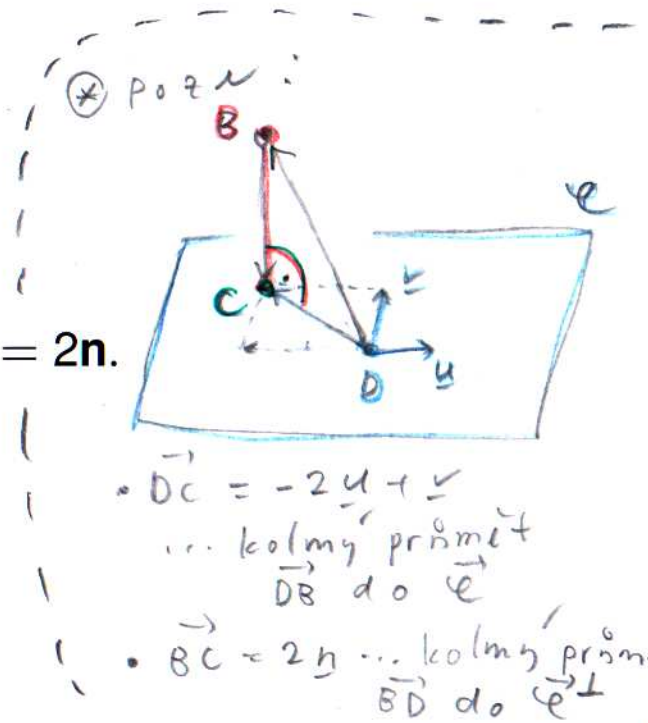 * pozn:
B
φ
C
v
= 2n.
u
D
• DC = -2u + v
... kolmý průmět
DB do φ
• BC = 2n ... kolmý prům
BD do φ⊥